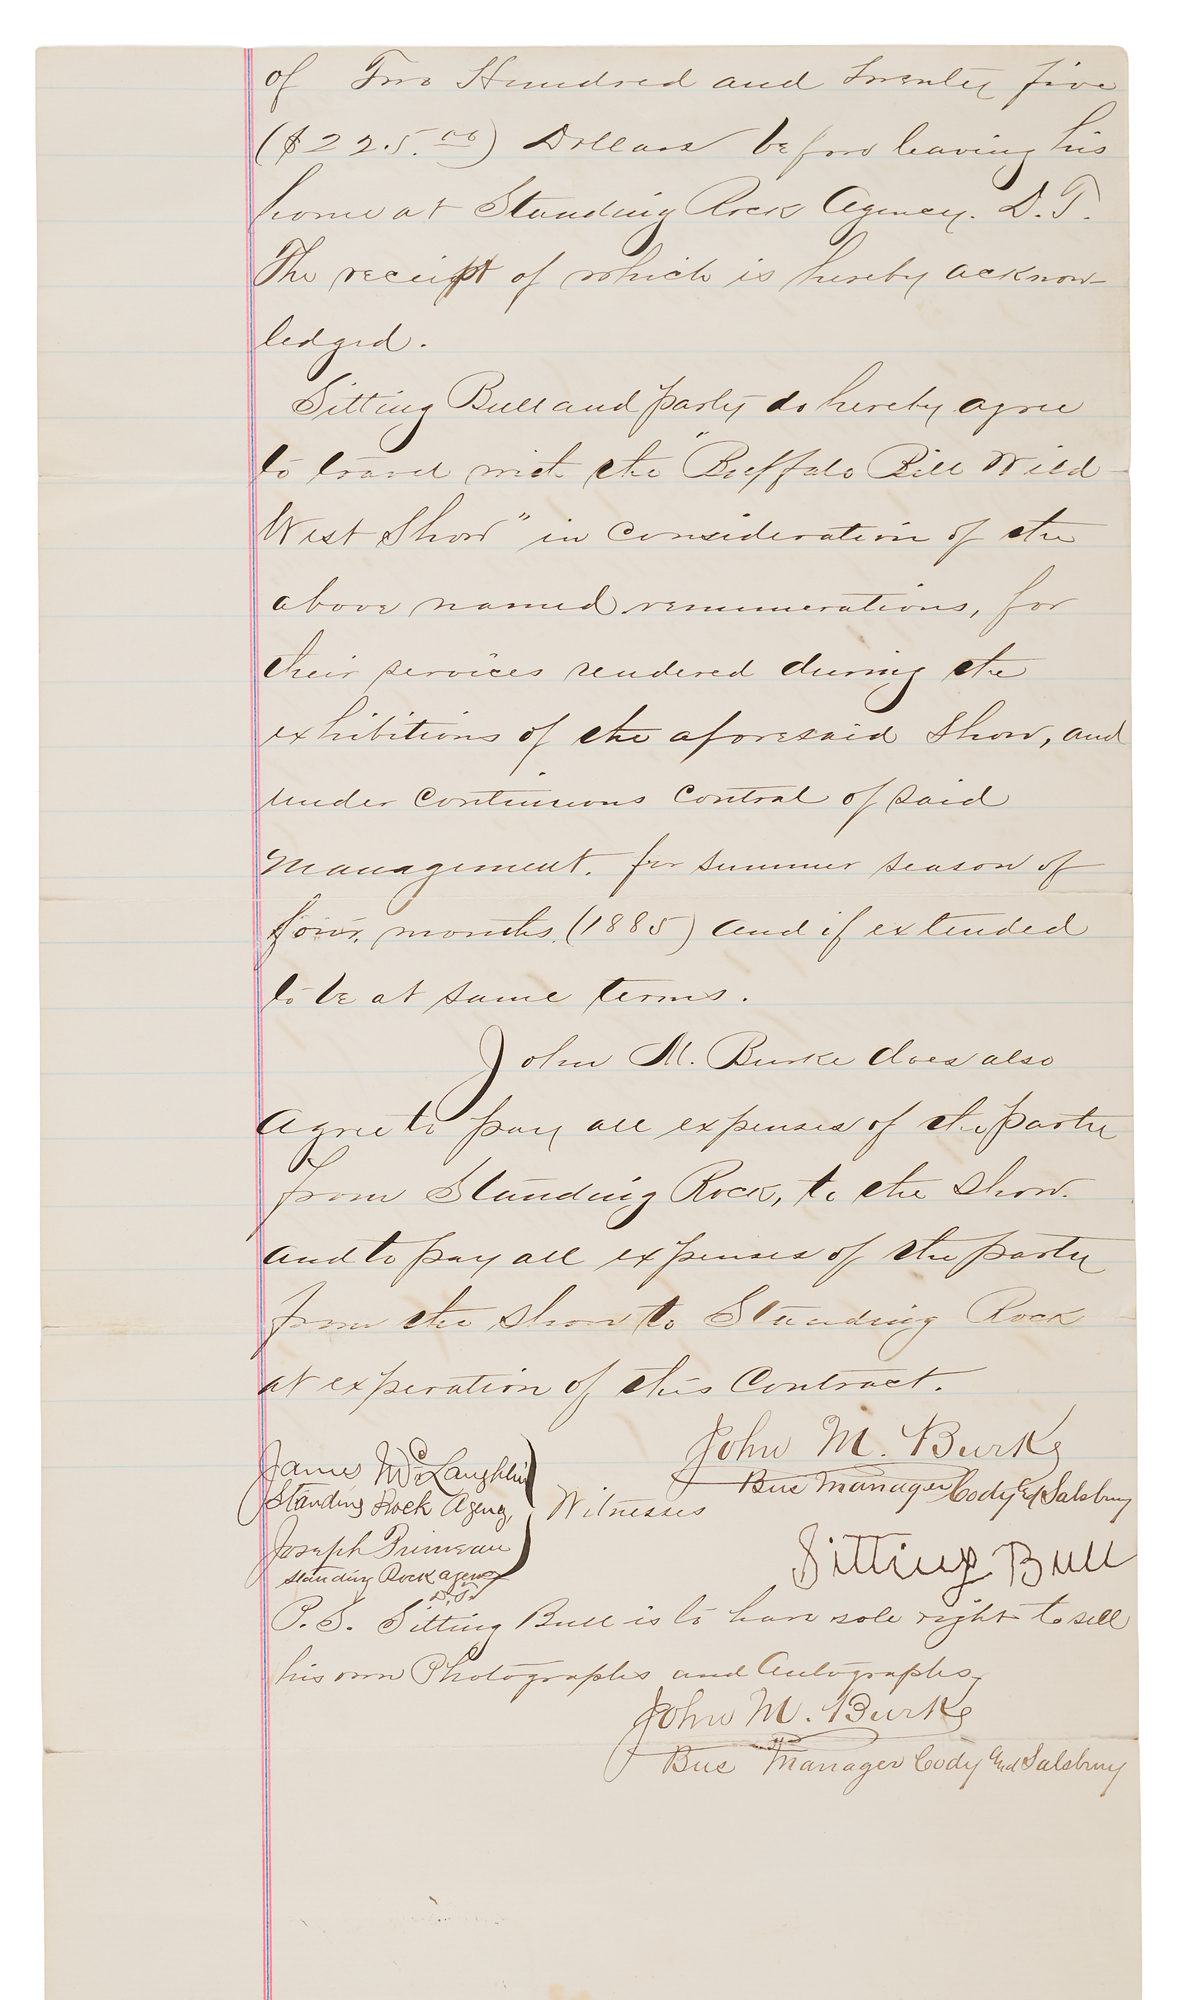 of Two Hundred and Twenty five
($225.00) Dollars before leaving his
home at Standing Rock Agency. D.T.
The receipt of which is hereby acknow-
ledged.
Sitting Bull and party do hereby agree
to travel with the "Buffalo Bill Wild
West Show" in consideration of the
above named remunerations, for
their services rendered during the
exhibitions of the aforesaid Show, and
under continuous control of said
Management. for summer season of
four, months, (1885) and if extended
to be at same terms.
John M. Burke does also
Agree to pay all expenses of the party
from Standing Rock, to the show.
and to pay all expenses of the party
from the show to Standing Rock
at experation of this Contract.
James McLaughlin
Standing Rock Agency,
Joseph Primeau
Standing Rock agency
D.T.
Witnesses
John M. Burke
Bus Manager Cody and Salsbury
Sitting Bull
P.S. Sitting Bull is to have sole right to sell
his own Photographs and Autographs,
John M. Burke
Bus Manager Cody and Salsbury